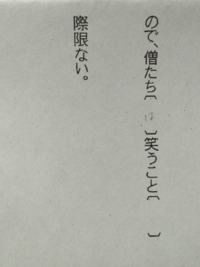 ので、僧たち〔は〕笑うこと〔　〕
際限ない。